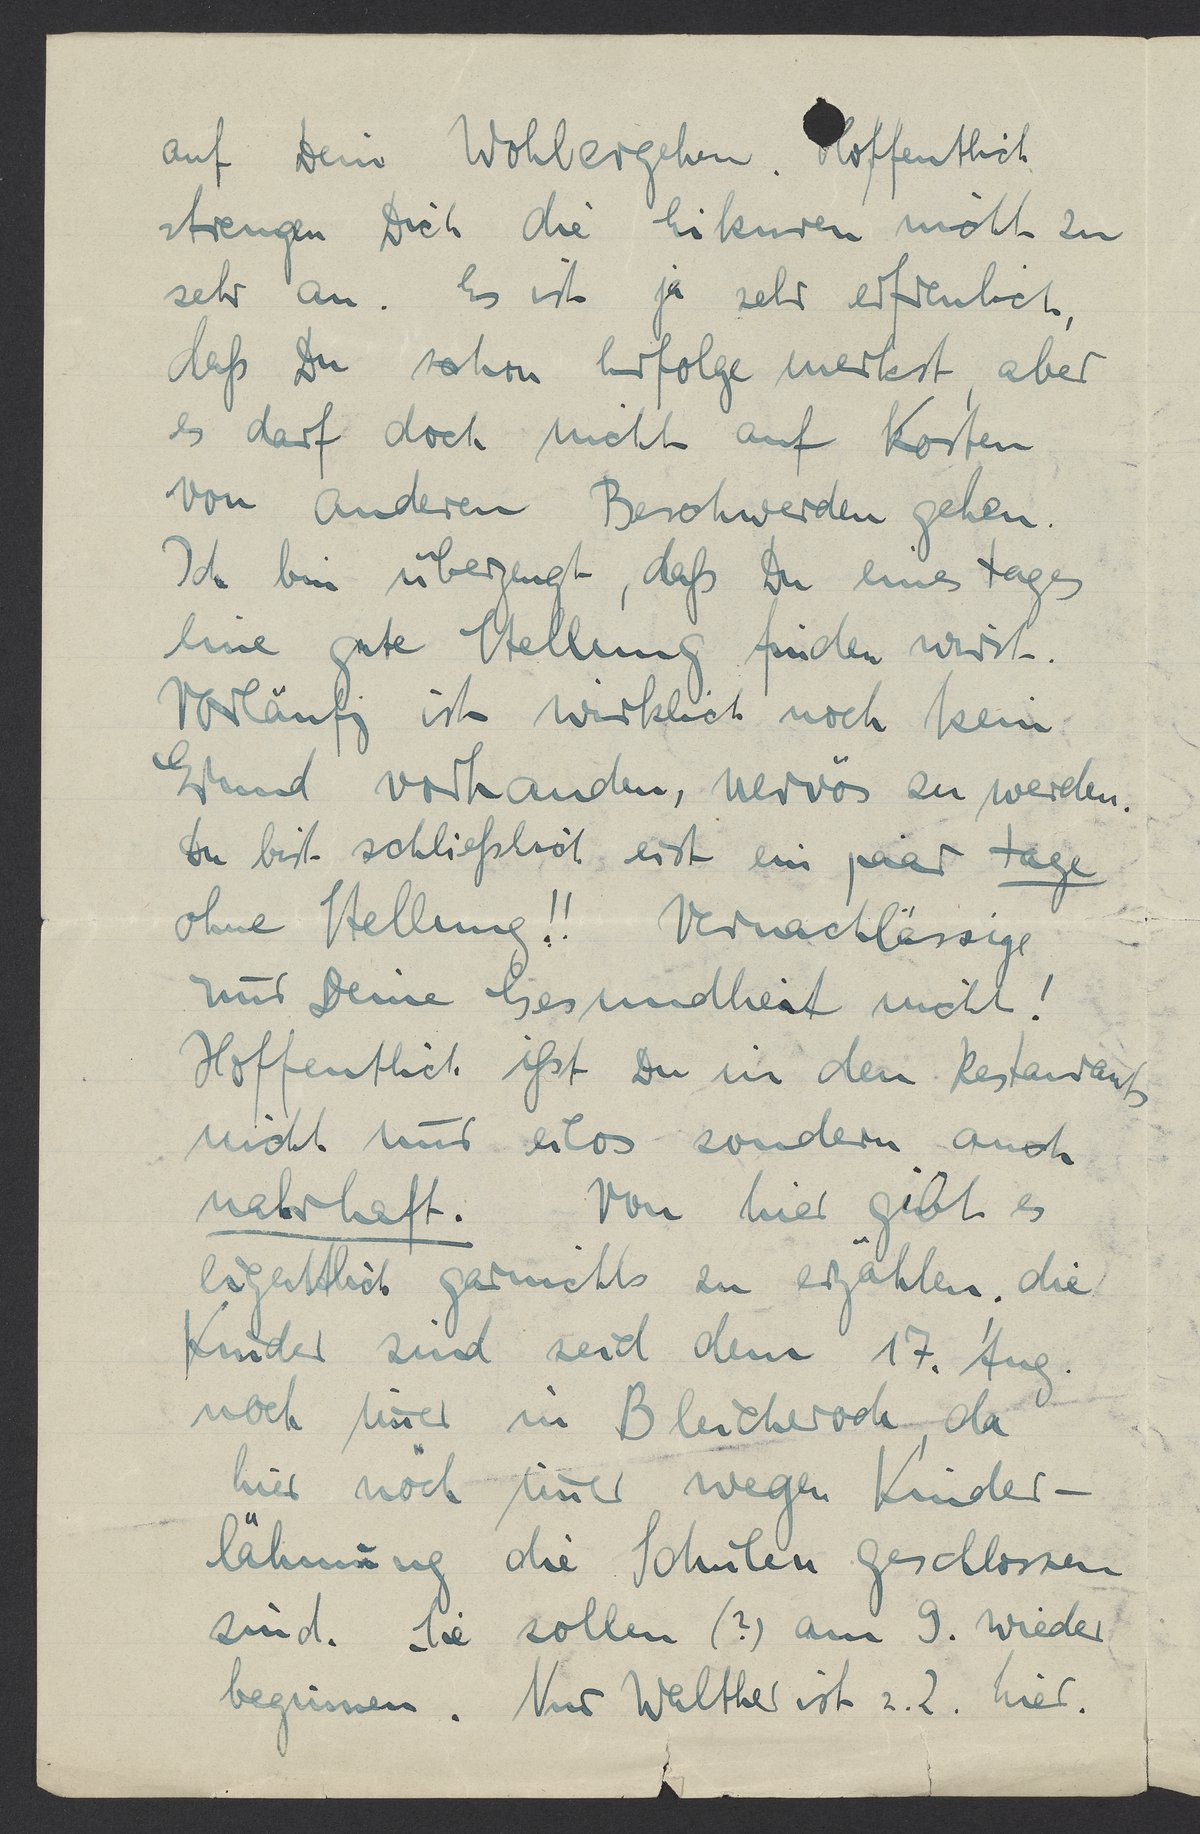 auf Dein Wohlergehen. Hoffentlich
strengen Dich die Eikuren nicht zu
sehr an. Es ist ja sehr erfreulich,
daß Du schon Erfolge merkst, aber
es darf doch nicht auf Kosten
von anderen Beschwerden gehen.
Ich bin überzeugt, daß Du eines Tages
eine gute Stellung finden wirst.
Vorläufig ist wirklich noch kein
Grund vorhanden, nervös zu werden.
Du bist schließlich erst ein paar Tage
ohne Stellung!! Vernachlässige
nur Deine Gesundheit nicht!
Hoffentlich ißt Du in den Restaurants
nicht nur eilos sondern auch
nahrhaft. Von hier gibt es
eigentlich garnichts zu erzählen. die
Kinder sind seid dem 17. Aug.
noch im̄er in Bleicherode, da
hier noch im̄er wegen Kinder-
lähmung die Schulen geschlossen
sind. Sie sollen (?) am 9. wieder
beginnen. Nur Walther ist z.Z. hier.